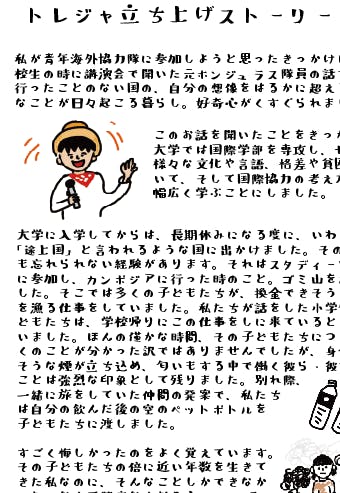 トレジャ立ち上げストーリー
私が青年海外協力隊に参加しようと思ったきっかけ
校生の時に講演会で聞いた元ホンジュラス隊員の話
行ったことのない国の、自分の想像をはるかに超え
なことが日々起こる暮らし。好奇心がくすぐられま
このお話を聞いたことをきっ
大学では国際学部を専攻し、
様々な文化や言語、格差や貧
いて、そして国際協力の考え
幅広く学ぶことにしました。
大学に入学してからは、長期休みになる度に、いわ
「途上国」と言われるような国に出かけました。その
も忘れられない経験があります。それはスタディー
に参加し、カンボジアに行った時のこと。ゴミ山を
した。そこでは多くの子どもたちが、換金できそう
を漁る仕事をしていました。私たちが話をした小学
ともたちは、学校帰りにこの仕事をしに来ていると
いました。ほんの僅かな時間、その子どもたちにつ
くのことが分かった訳ではありませんでしたが、身
そうな煙が立ち込め、匂いもする中で働く彼ら・彼
ことは強烈な印象として残りました。別れ際、
一緒に旅をしていた仲間の発案で、私たち
は自分の飲んだ後の空のペットボトルを
子どもたちに渡しました。
すごく悔しかったのをよく覚えています。
その子どもたちの倍に近い年数を生きて
きた私なのに、そんなことしかできなか